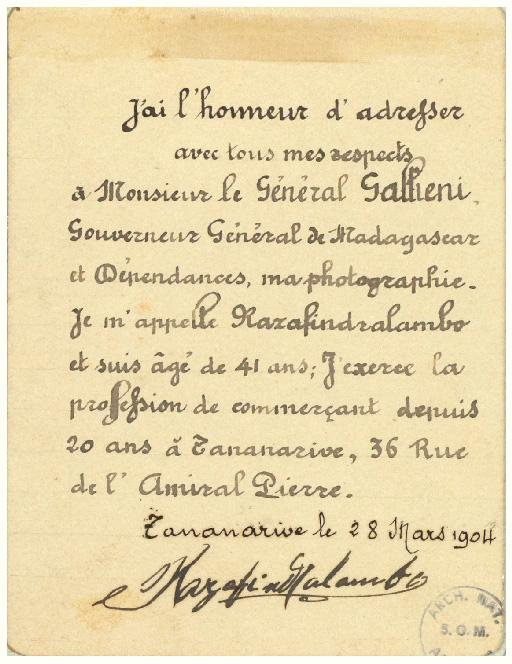 J'ai l'honneur d'adresser
avec tous mes respects
à Monsieur le Général Gallieni,
Gouverneur Général de Madagascar
et Dépendances, ma photographie.
Je m'appelle Razafindralambo
et suis âgé de 41 ans; J'exerce la
profession de commerçant depuis
20 ans à Tananarive, 36 Rue
de l'Amiral Pierre.
Tananarive le 28 Mars 1904
Razafindralambo
ARCH. NAT.
S.O.M.